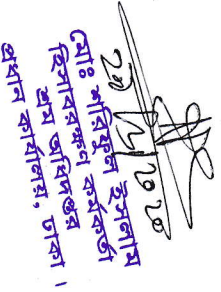 ২৯/১২/২০২০
মোঃ শফিকুল ইসলাম
হিসাবরক্ষণ কর্মকর্তা
শ্রম অধিদপ্তর
প্রধান কার্যালয়, ঢাকা।